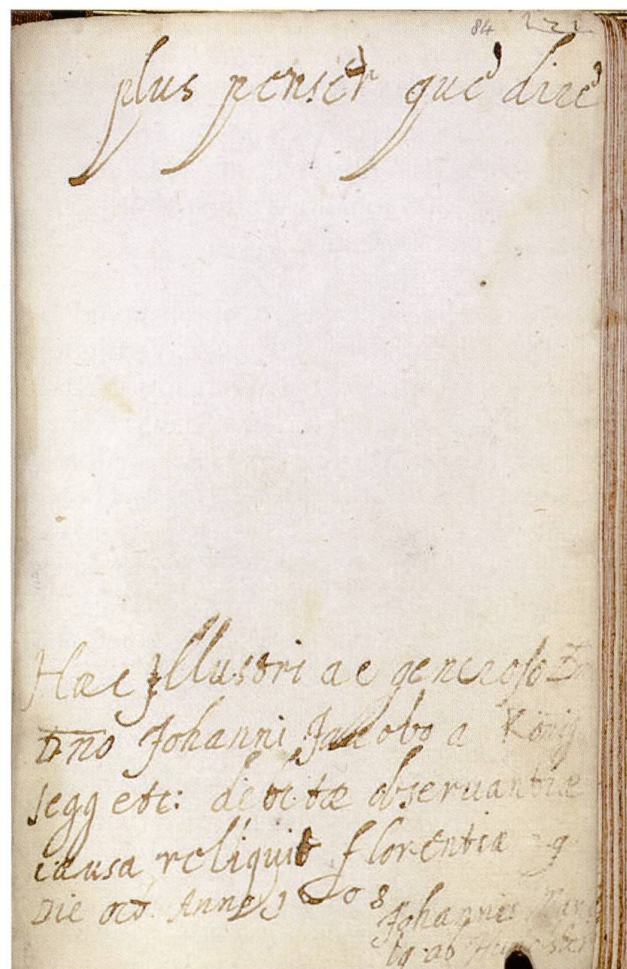 84 222
plus penser que dire
Hæc Illustri ac generoso
Dno Johanni Jacobo a König
segg etc: debitæ observantiæ
causa reliquit florentiæ
Die oct. Anno 1608
Johannes